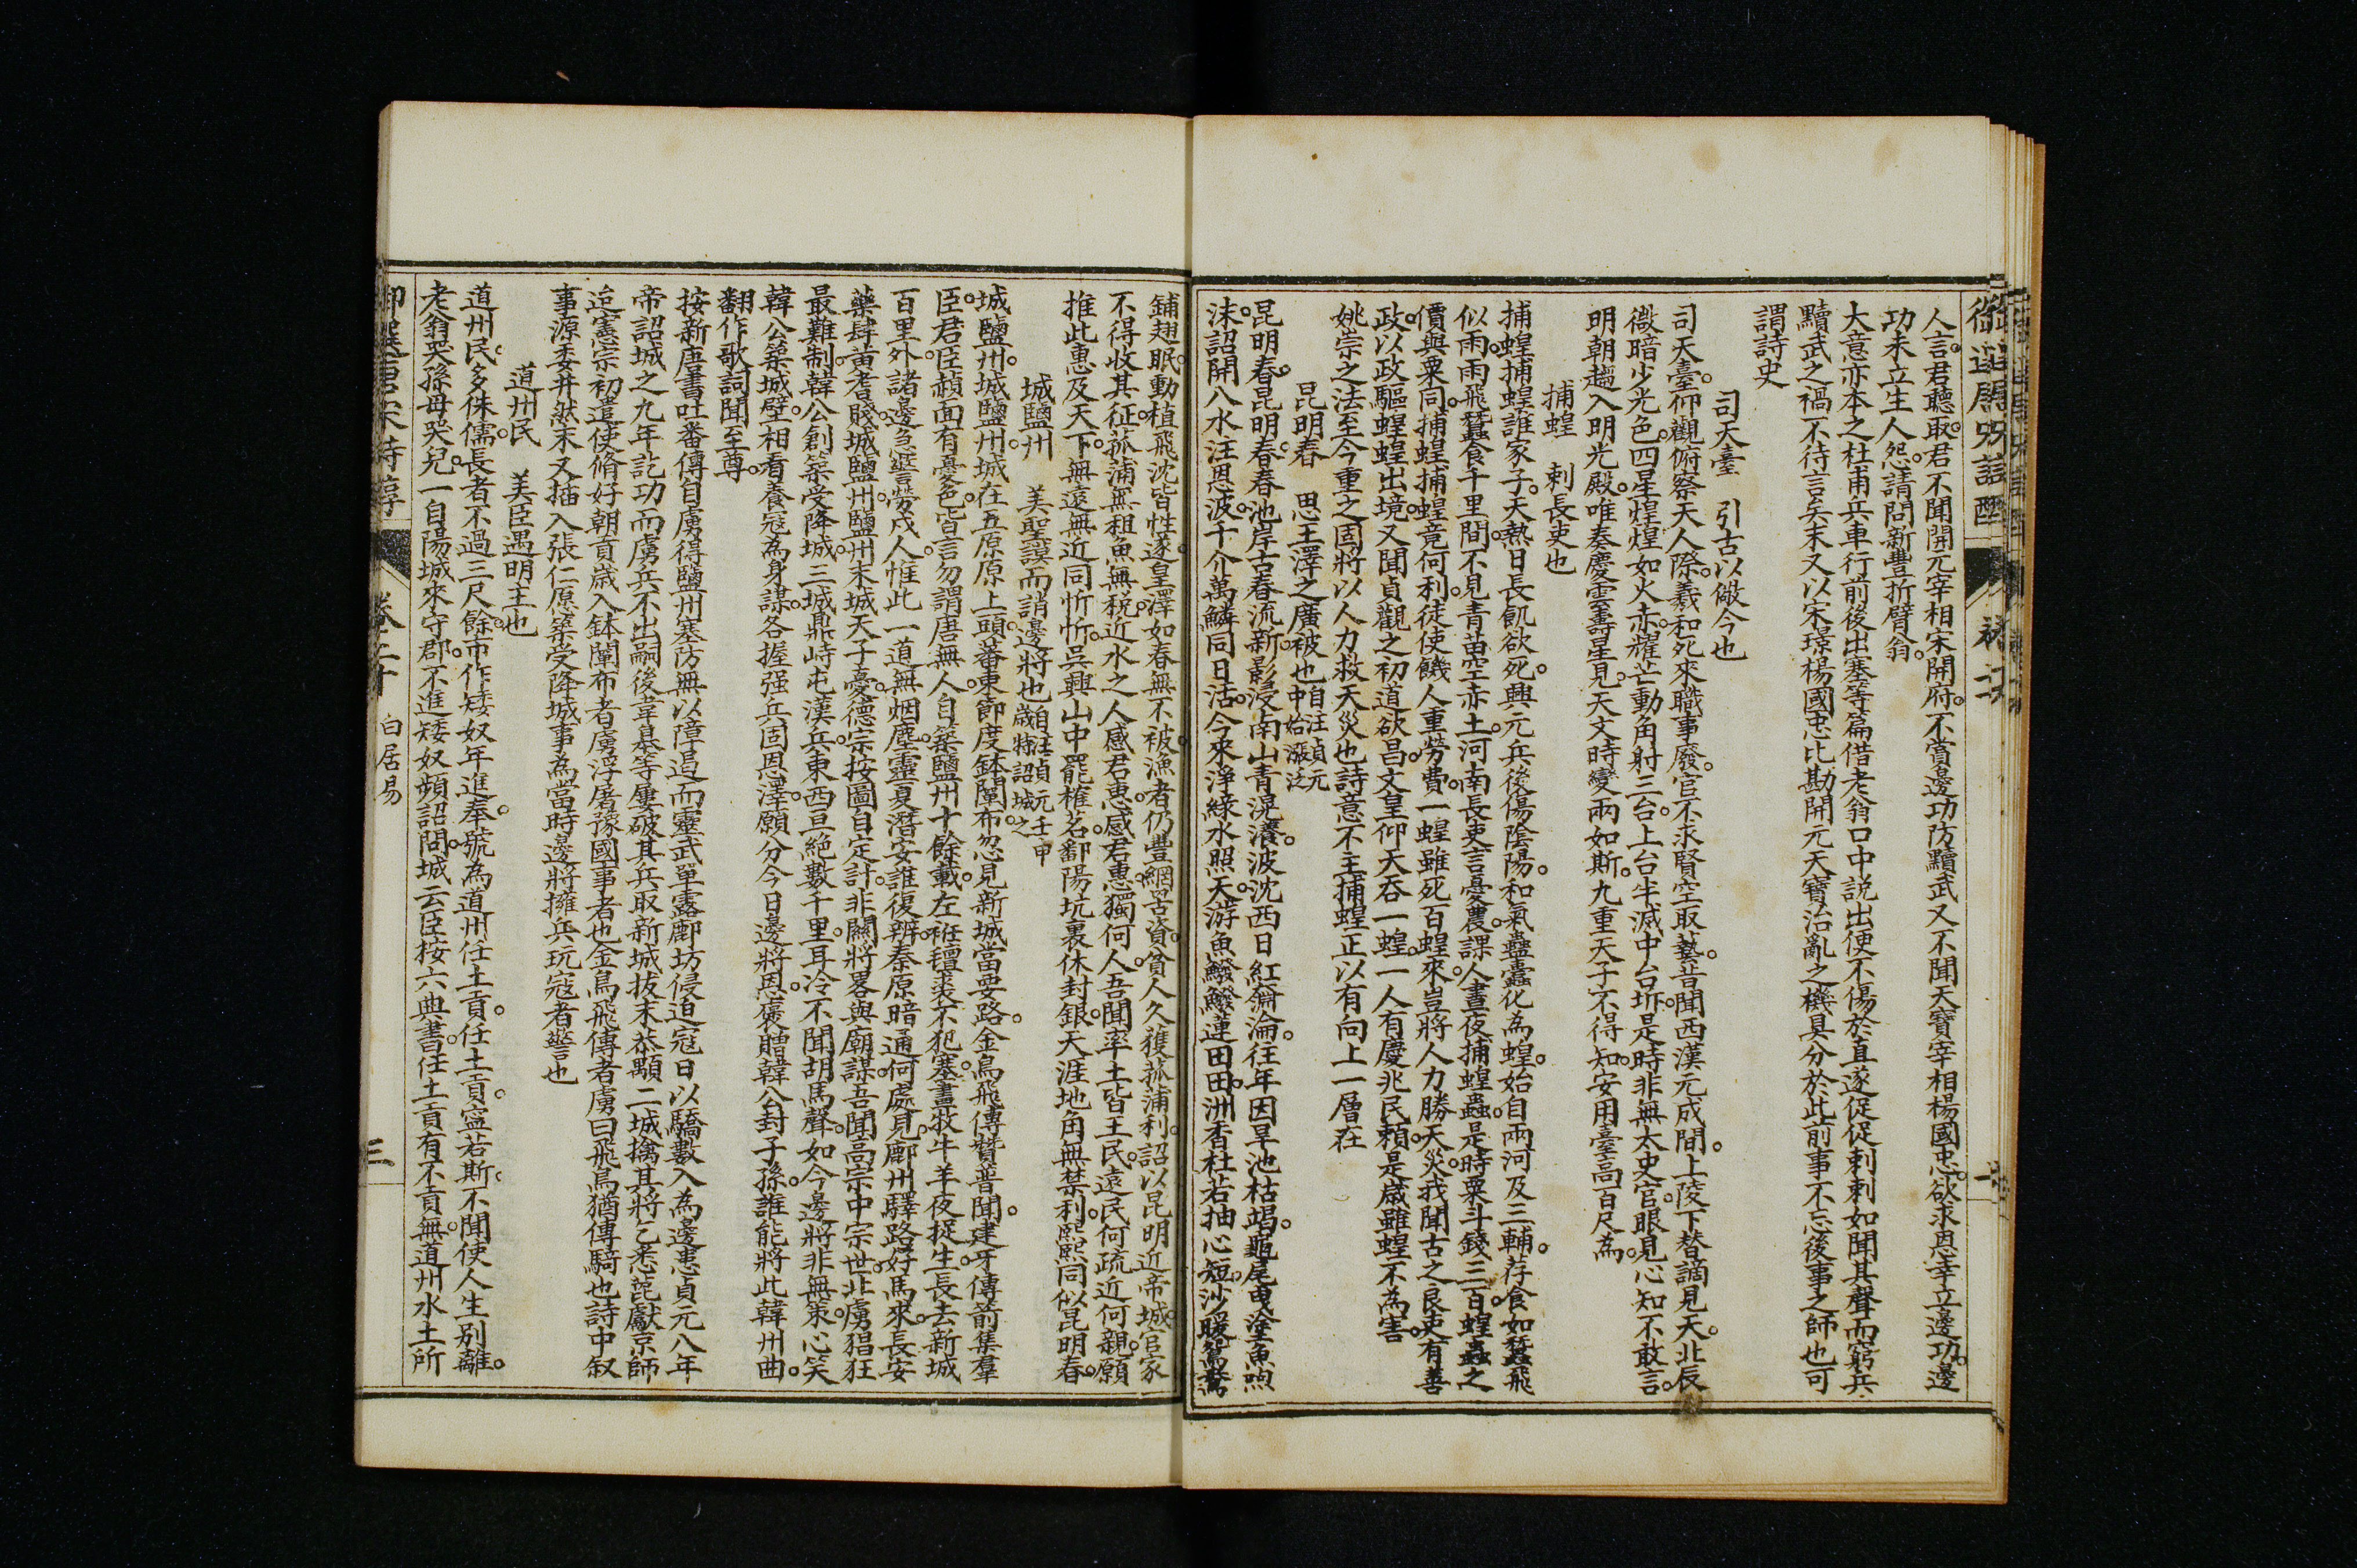 人言。君聽取。君不聞開元宰相宋開府。不賞邊功防黷武。又不聞天寶宰相楊國忠。欲求恩幸立邊功。邊
功未立生人怨。請問新豐折臂翁。
大意亦本之杜甫兵車行前後出塞等篇借老翁口中說出便不傷於直遂促促刺刺如聞其聲而窮兵
黷武之禍不待言矣末又以宋璟楊國忠比勘開元天寶治亂之機具分於此前事不忘後事之師也可
謂詩史
司天臺 引古以儆今也
司天臺。仰觀俯察天人際。羲和死來職事廢。官不求賢空取藝。昔聞西漢元成間。上陵下替謫見天。北辰
微暗少光色。四星煌煌如火赤。耀芒動角射三台。上台半滅中台坼。是時非無太史官。眼見心知不敢言。
明朝趨入明光殿。唯奏慶雲壽星見。天文時變兩如斯。九重天子不得知。安用臺高百尺為。
捕蝗 刺長吏也
捕蝗捕蝗誰家子。天熱日長飢欲死。興元兵後傷陰陽。和氣蠱蠹化為蝗。始自兩河及三輔。荐食如蠶飛
似雨。雨飛蠶食千里間。不見青苗空赤土。河南長吏言憂農。課人晝夜捕蝗蟲。是時粟斗錢三百。蝗蟲之
價與粟同。捕蝗捕蝗竟何利。徒使饑人重勞費。一蝗雖死百蝗來。豈將人力勝天災。我聞古之良吏有善
政。以政驅蝗蝗出境。又聞貞觀之初道欲昌。文皇仰天吞一蝗。一人有慶兆民賴。是歲雖蝗不為害。
姚崇之法至今重之固將以人力救天災也詩意不主捕蝗正以有向上一層在
昆明春 思王澤之廣被也 自注貞元中始漲泛
昆明春。昆明春。春池岸古春流新。影浸南山青滉瀁。波沈西日紅奫淪。往年因旱池枯竭。龜尾曳塗魚喣
沫。詔開八水注恩波。千介萬鱗同日活。今來淨綠水照天。游魚鱍鱍蓮田田。洲香杜若抽心短。沙暖鴛鴦
鋪翅眠。動植飛沈皆性遂。皇澤如春無不被。漁者仍豐網罟資。貧人久獲菰蒲利。詔以昆明近帝城。官家
不得收其征。菰蒲無租魚無稅。近水之人感君惠。感君惠。獨何人。吾聞率土皆王民。遠民何疏近何親。願
推此惠及天下。無遠無近同忻忻。吳興山中罷榷茗。鄱陽坑裏休封銀。天涯地角無禁利。熙熙同似昆明春。
城鹽州 美聖謨而誚邊將也 自注貞元壬申歲特詔城之
城鹽州。城鹽州。城在五原原上頭。蕃東節度鉢闡布。忽見新城當要路。金鳥飛傳贊普聞。建牙傳箭集羣
臣。君臣赬面有憂色。皆言勿謂唐無人。自築鹽州十餘載。左衽氊裘不犯塞。晝牧牛羊夜捉生。長去新城
百里外。諸邊急警勞戍人。惟此一道無烟塵。靈夏潛安誰復辨。秦原暗通何處見。鄜州驛路好馬來。長安
藥肆黃耆賤。城鹽州。鹽州未城天子憂。德宗按圖自定計。非關將畧與廟謀。吾聞高宗中宗世。北虜猖狂
最難制。韓公創築受降城。三城鼎峙屯漢兵。東西亘絕數千里。耳冷不聞胡馬聲。如今邊將非無策。心笑
韓公築城壁。相看養寇為身謀。各握强兵固恩澤。願分今日邊將恩。褒贈韓公封子孫。誰能將此鹽州曲。
翻作歌詞聞至尊。
按新唐書吐番傳自虜得鹽州塞防無以障遏而靈武單露鄜坊侵迫寇日以驕數入為邊患貞元八年
帝詔城之九年訖功而虜兵不出嗣後韋臯等屢破其兵取新城拔末恭顒二城擒其將乞悉蓖獻京師
迨憲宗初遣使脩好朝貢歲入鉢闡布者虜浮屠豫國事者也金鳥飛傳者虜曰飛鳥猶傳騎也詩中叙
事源委井然末又插入張仁愿築受降城事為當時邊將擁兵玩寇者警也
道州民 美臣遇明主也
道州民。多侏儒。長者不過三尺餘。市作矮奴年進奉。號為道州任土貢。任土貢。寧若斯。不聞使人生別離。
老翁哭孫母哭兒。一自陽城來守郡。不進矮奴頻詔問。城云臣按六典書。任土貢有不貢無。道州水土所
御選唐宋詩醇 卷二十 白居易 三